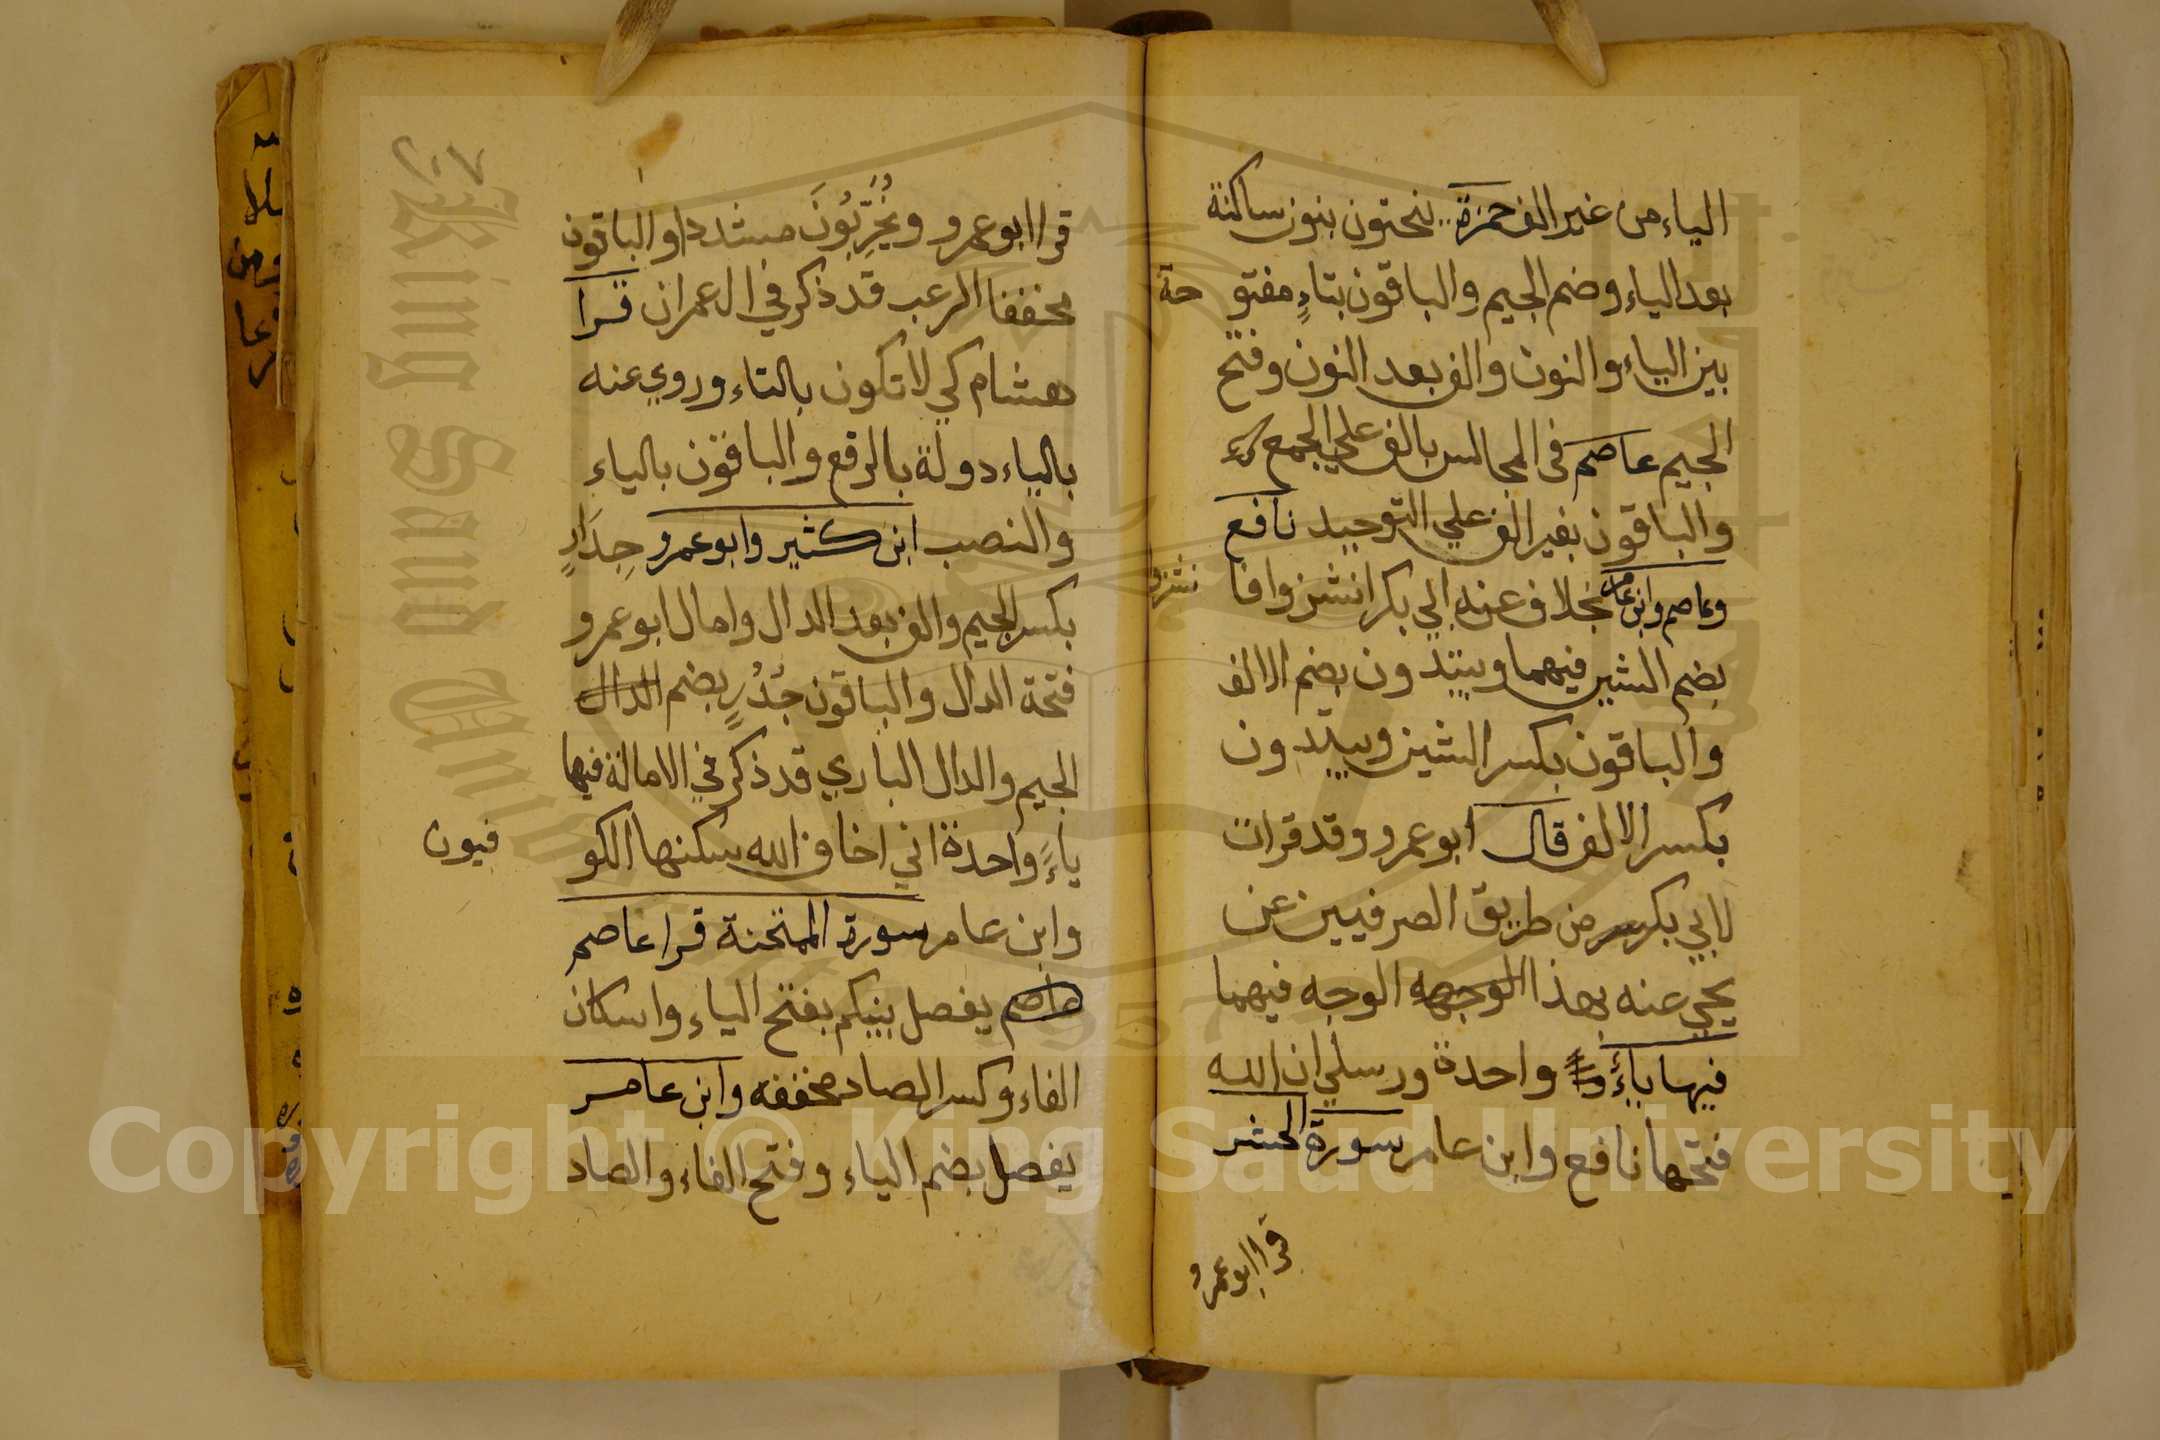 الياء من غير الف حمزة ينتجون بنون ساكنة
بعد الياء وضم الجيم والباقون بتاءٍ مفتو حة
بين الياء والنون والف بعد النون وفتح
الجيم عاصم فى المجالس بالف علي الجمع
والباقون بغير الف علي التوحيد نافع
وعاصم وابن عامر بخلاف عنه ابي بكر انشزوا فا نشزوا
بضم الشين فيهما ويبتدون بضم الالف
والباقون بكسر الشين ويبتدون
بكسر الالف قال ابو عمرو وقد قرات
لابي بكر من طريق الصرفيين عن
يحيي عنه بهذا الوجه فيهما
فيها ياءٌ واحدة ورسلي ان الله
فتحها نافع وابن عامر سورة الحشر
قرا ابو عمرو
قرا ابو عمرو ويُخَرِّبُونَ مشددا والباقون
مخففا الرعب قد ذكر في ال عمران قرا
هشام كي لا تكون بالتاء وروي عنه
بالياء دولة بالرفع والباقون بالياء
والنصب ابن كثير وابو عمرو جِدَارٍ
بكسر الجيم والف بعد الدال وامال ابو عمرو
فتحة الدال والباقون جُدُرٍ بضم الدال
الجيم والدال الباري قد ذكر في الامالة فيها
ياءٌ واحدة اني اخاف الله سكنها الكو فيون
وابن عامر سورة الممتحنة قرا عاصم
عاصم يفصل بينكم بفتح الياء واسكان
الفاء وكسر الصاد مخففه وابن عامر
يفصل بضم الياء وفتح الفاء والصاد
Copyright © King Saud University